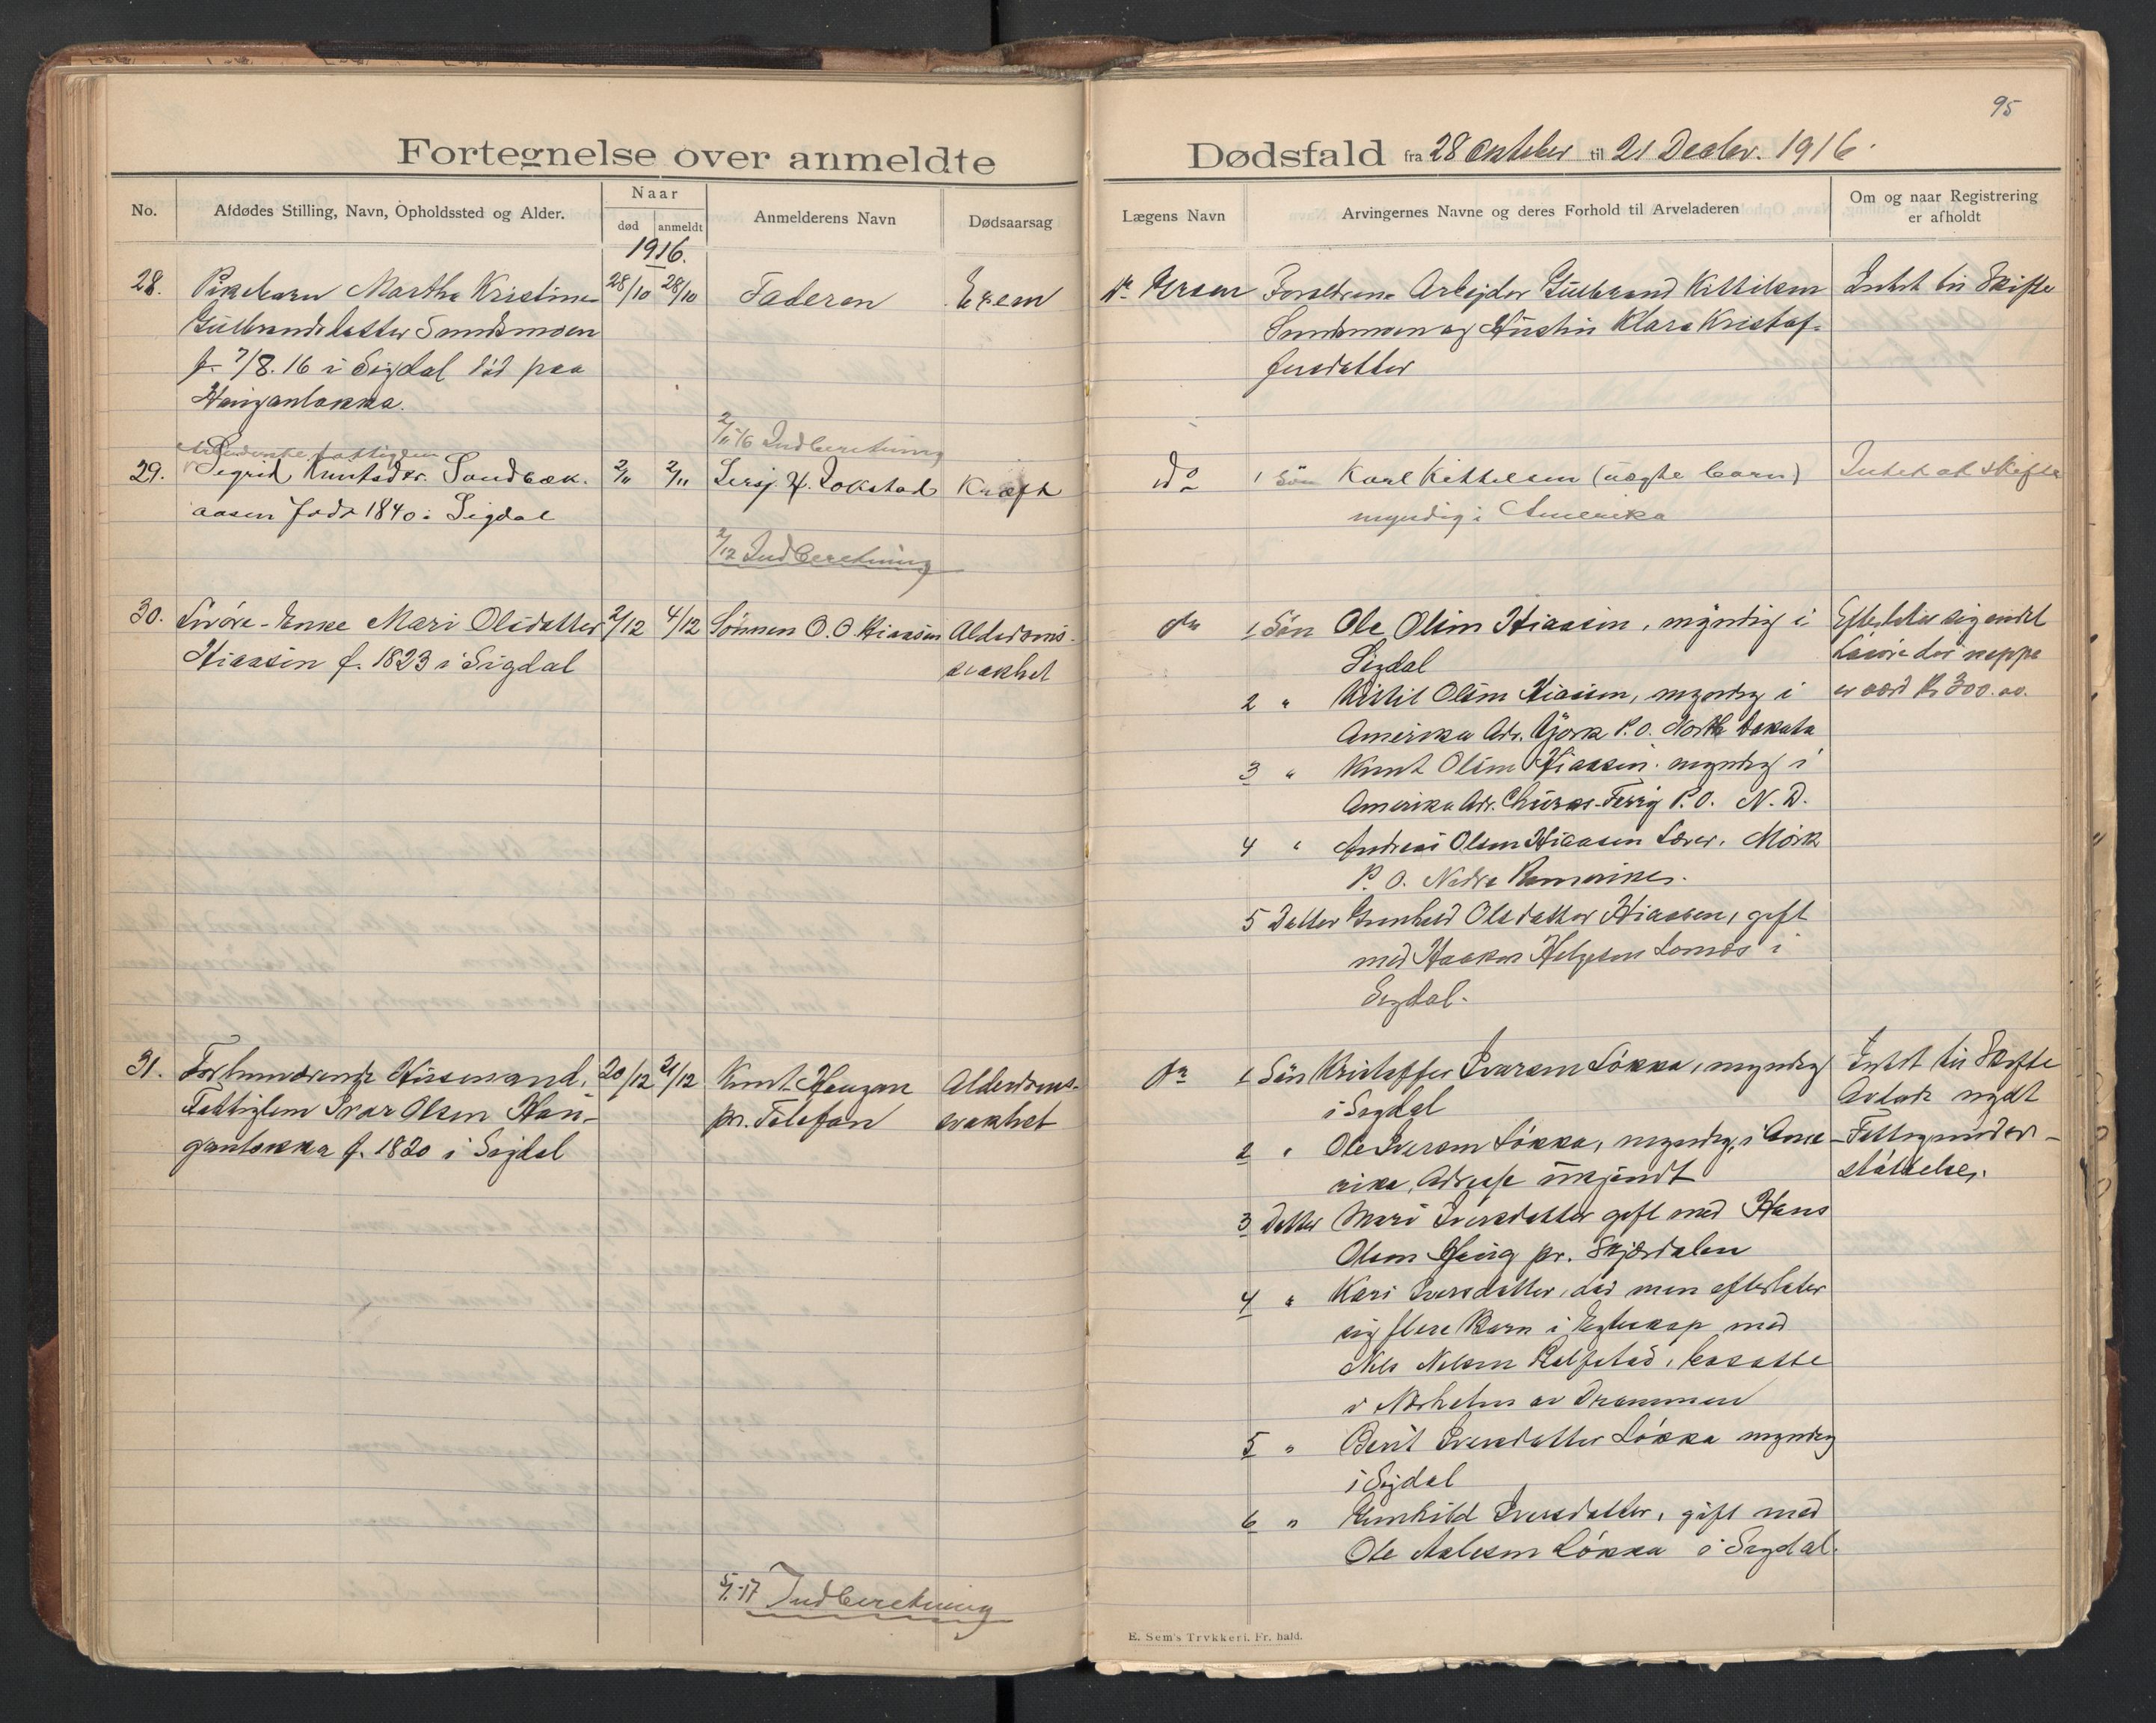 95
Fortegnelse over anmeldte
Dødsfald fra 28 Oktober til 21 Decbr. 1916.
No.
Afdødes Stilling, Navn, Opholdssted og Alder.
Naar
død
anmeldt
Anmelderens Navn
Dødsaarsag
Lægens Navn
Arvingernes Navne og deres Forhold til Arveladeren
Om og naar Registrering
er afholdt
1916.
28.
Pikebarn Martha Kristine
Gulbrandsdatter Sandsmoen
f. 7/8.16 i Sigdal død paa
Hauganløkka.
28/10
28/10
Faderen
Exem
Dr.
Forældrene Arbejder Gulbrand Kittilsen
Sandsmoen og Hustru Klara Kristof-
fersdatter
Intet til Skifte
2/11 16 Indberetning
29.
fattiglem
Sigrid Knutsdtr. Sandbæk.
aasen født 1840 i Sigdal
2/11
2/11
Lersj. H. Lokstad
Kræft
do
1 Søn Karl Kittelsen (uægte barn)
myndig i Amerika
Intet at skifte
2/12 Indberetning
30.
Livøre-Enke Mari Olsdatter
Hiaasen f. 1823 i Sigdal
2/12
4/12
Sønnen O. O. Hiaasen
Alderdoms-
svakhet
do
1 Søn Ole Olsen Hiaasen, myndig i
Sigdal
2 " Kittil Olsen Hiaasen, myndig i
Amerika Adr. York P.O. North Dakota
3 " Knut Olsen Hiaasen. myndig i
Amerika Adr. Churchs-Ferry P.O. N.D.
4 " Andreas Olsen Hiaasen Lærer. Mörk
P.O. Nedre Romerike.
5 Datter Gunhild Olsdatter Hiaasen, gift
med Haakon Helgesen Lomås i
Sigdal.
Efterlater sig endel
Løsøre der neppe
er værd Kr 300.00.
31.
Forhenværende Husmand,
Fattiglem Ivar Olsen Hau-
ganløkka f. 1820 i Sigdal
20/12
21/12
Knut Haugan
pr. Telefon
Alderdoms-
svakhet
do
1 Søn Kristoffer Iversen Løkka, myndig
i Sigdal
2 " Ole Iversen Løkka, myndig, i Ame-
rika, Adresse ukjendt
3 Datter Mari Iversdatter gift med Hans
Olsen Haug pr. Skjærdalen
4 " Kari Iversdatter, død men efterlater
sig flere Barn i Egteskap med
Nils Nilsen, bosatte
i Nærheten av Drammen
5 " Berit Iversdatter Løkka myndig
i Sigdal
6 " Gunhild Iversdatter, gift med
Ole Aslesen Løkka i Sigdal.
Intet til Skifte
Avdøde nydt
Fattigunder-
støttelse.
5/1-17 Indberetning
E. Sem's Trykkeri. Fr. hald.